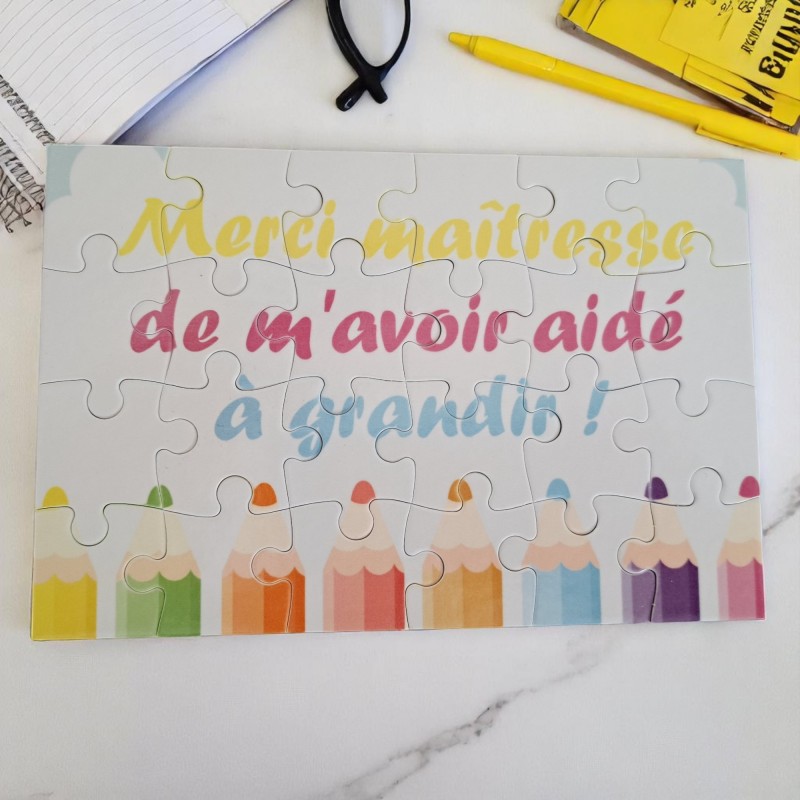 Merci maîtresse
de m'avoir aidé
à grandir !